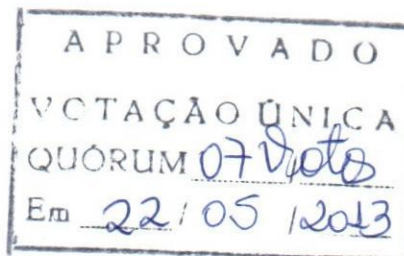 APROVADO
VOTAÇÃO ÚNICA
QUÓRUM 07 Votos
Em 22/05/2013